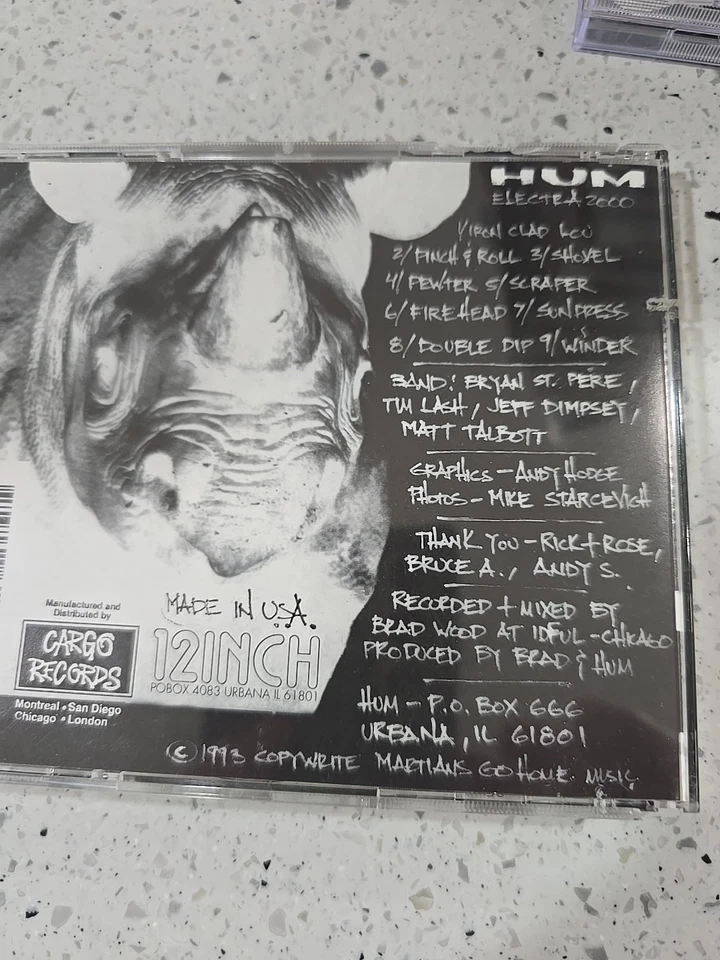 HUM
ELECTRA 2000
1/IRON CLAD LOU
2/FINCH & ROLL 3/SHOVEL
4/PEWTER 5/SCRAPER
6/FIREHEAD 7/SUNDRESS
8/DOUBLE DIP 9/WINDER
BAND: BRYAN ST. PERE,
TIM LASH, JEFF DIMPSEY,
MATT TALBOTT
GRAPHICS - ANDY HODGE
PHOTOS - MIKE STARCEVICH
THANK YOU - RICK + ROSE,
BRUCE A., ANDY S.
RECORDED + MIXED BY
BRAD WOOD AT IDFUL - CHICAGO
PRODUCED BY BRAD & HUM
HUM - P.O. BOX 666
URBANA, IL 61801
© 1993 COPYWRITE MARTIANS GO HOME MUSIC
MADE IN U.S.A.
12INCH
POBOX 4083 URBANA IL 61801
Manufactured and
Distributed by
CARGO
RECORDS
Montreal • San Diego
Chicago • London